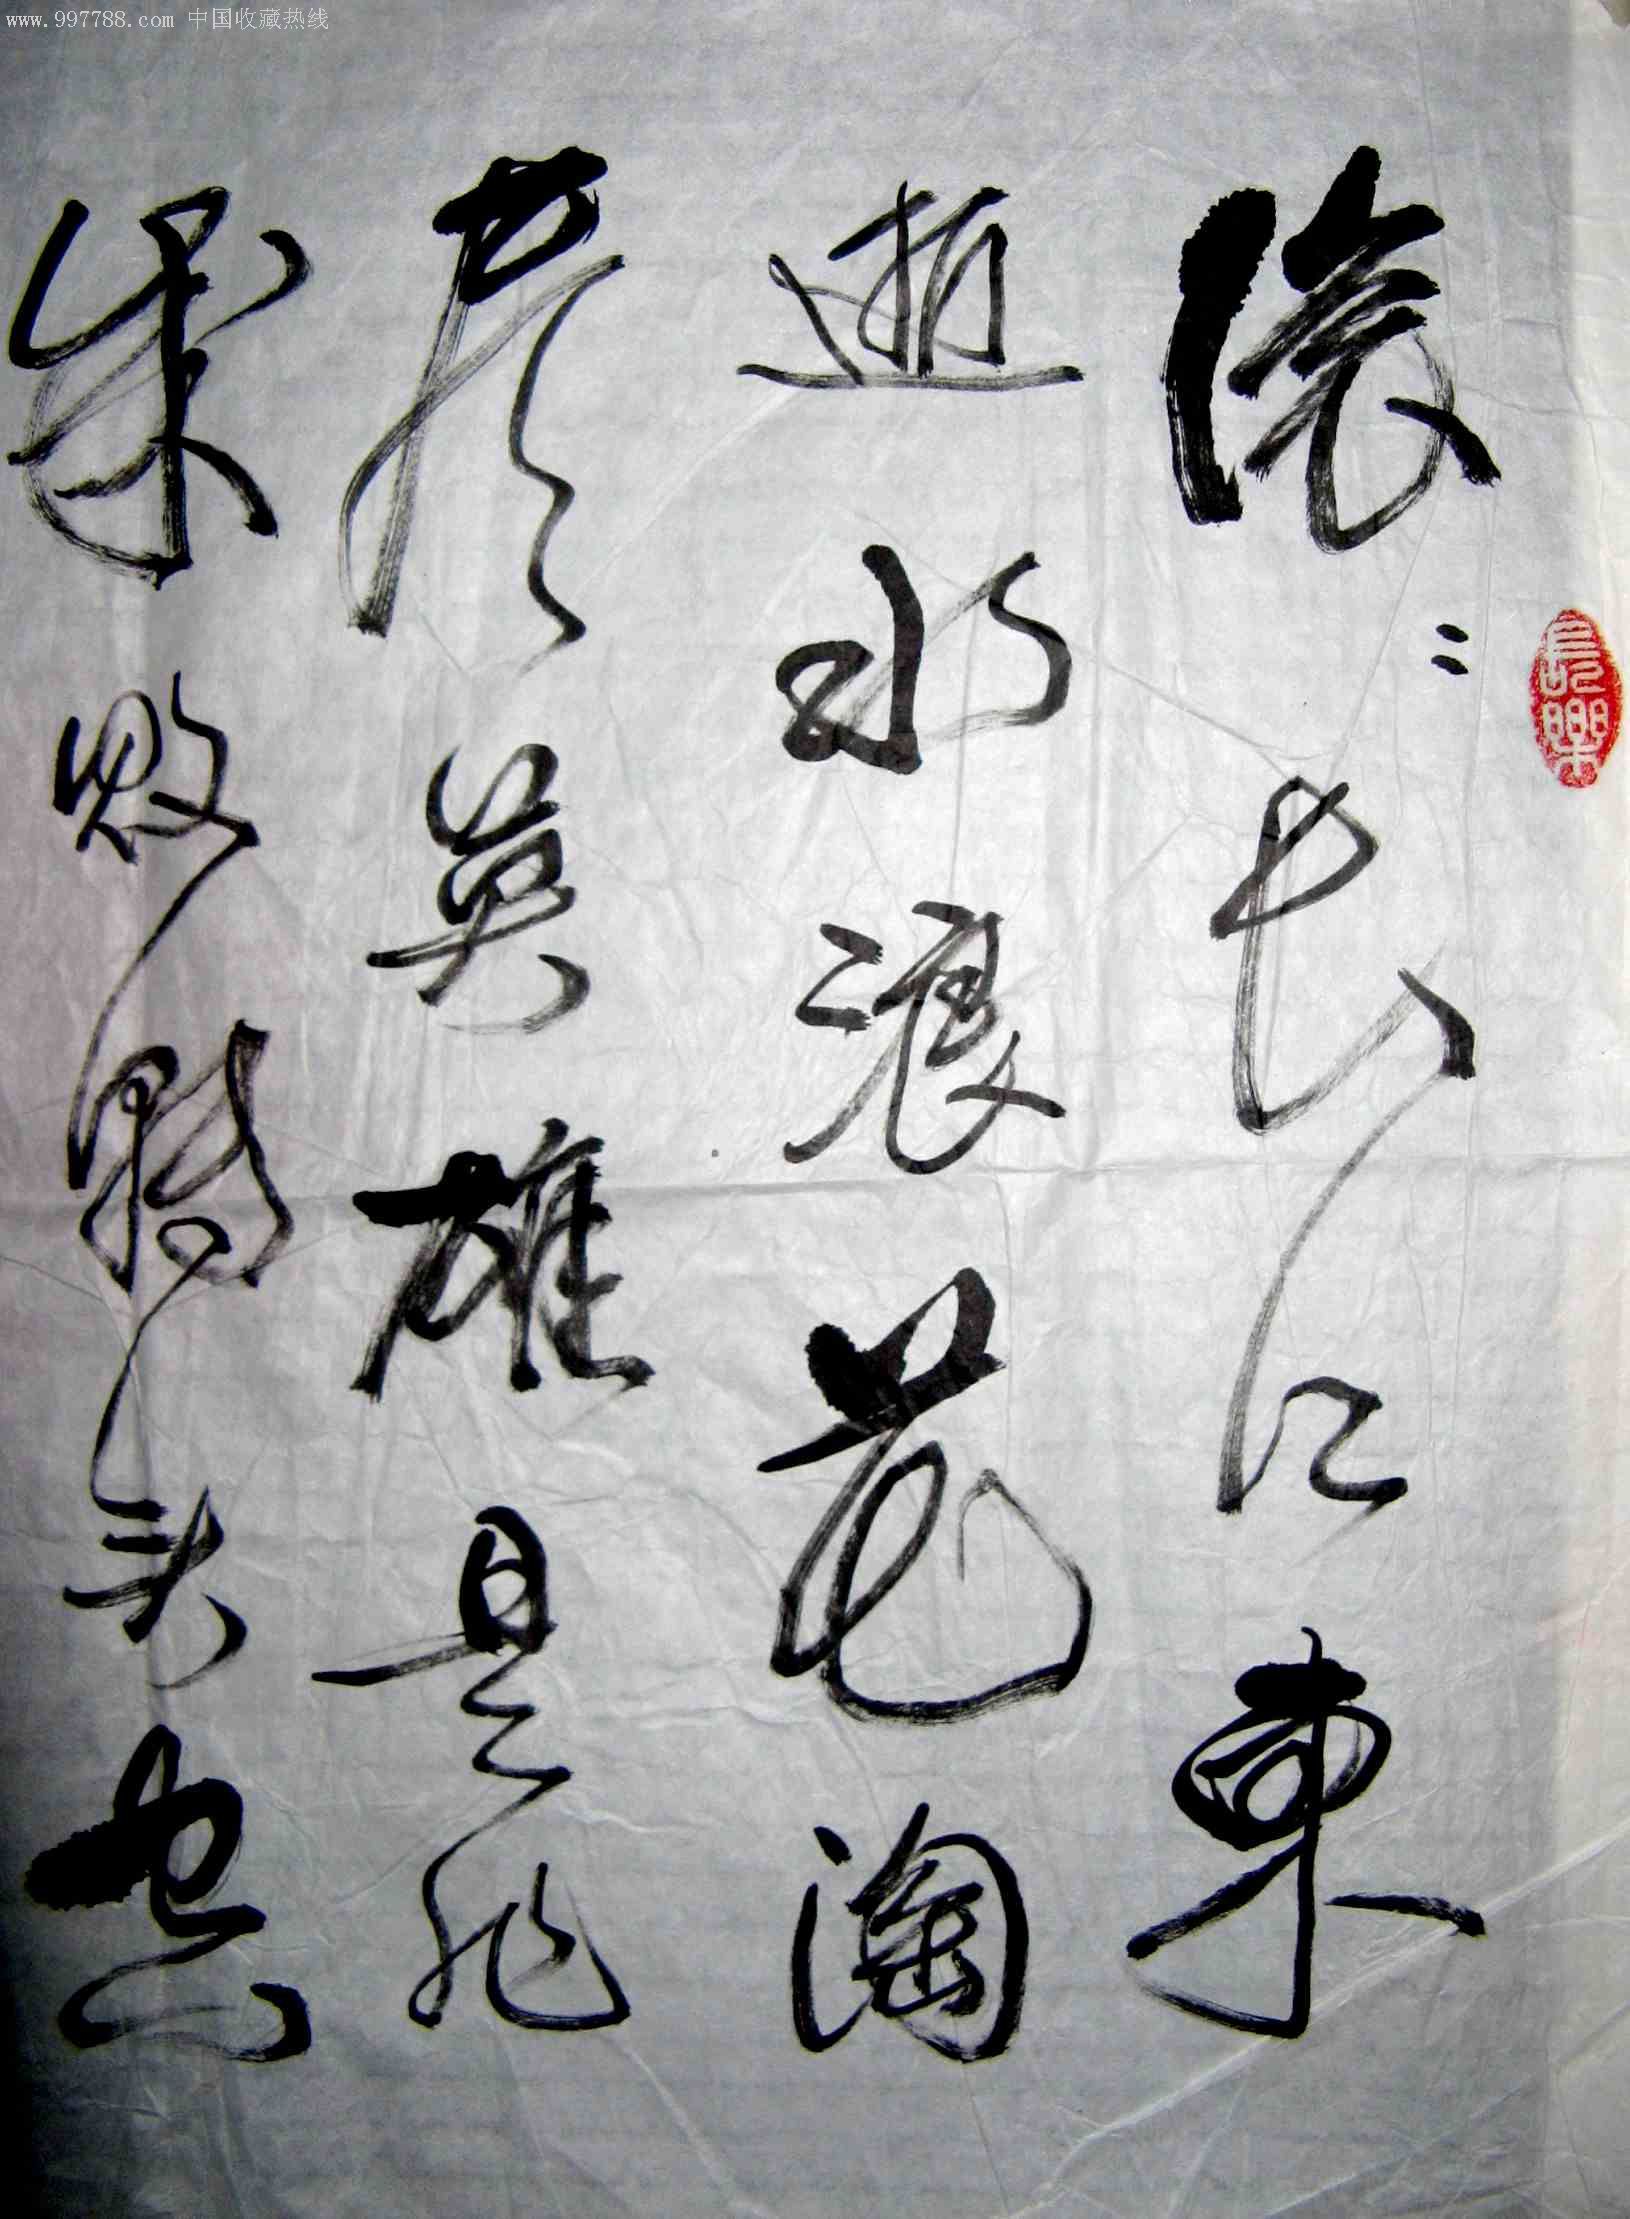 www.997788.com 中国收藏热线
長樂
滚〻長江東
逝水浪花淘
尽英雄是非
成敗轉头空